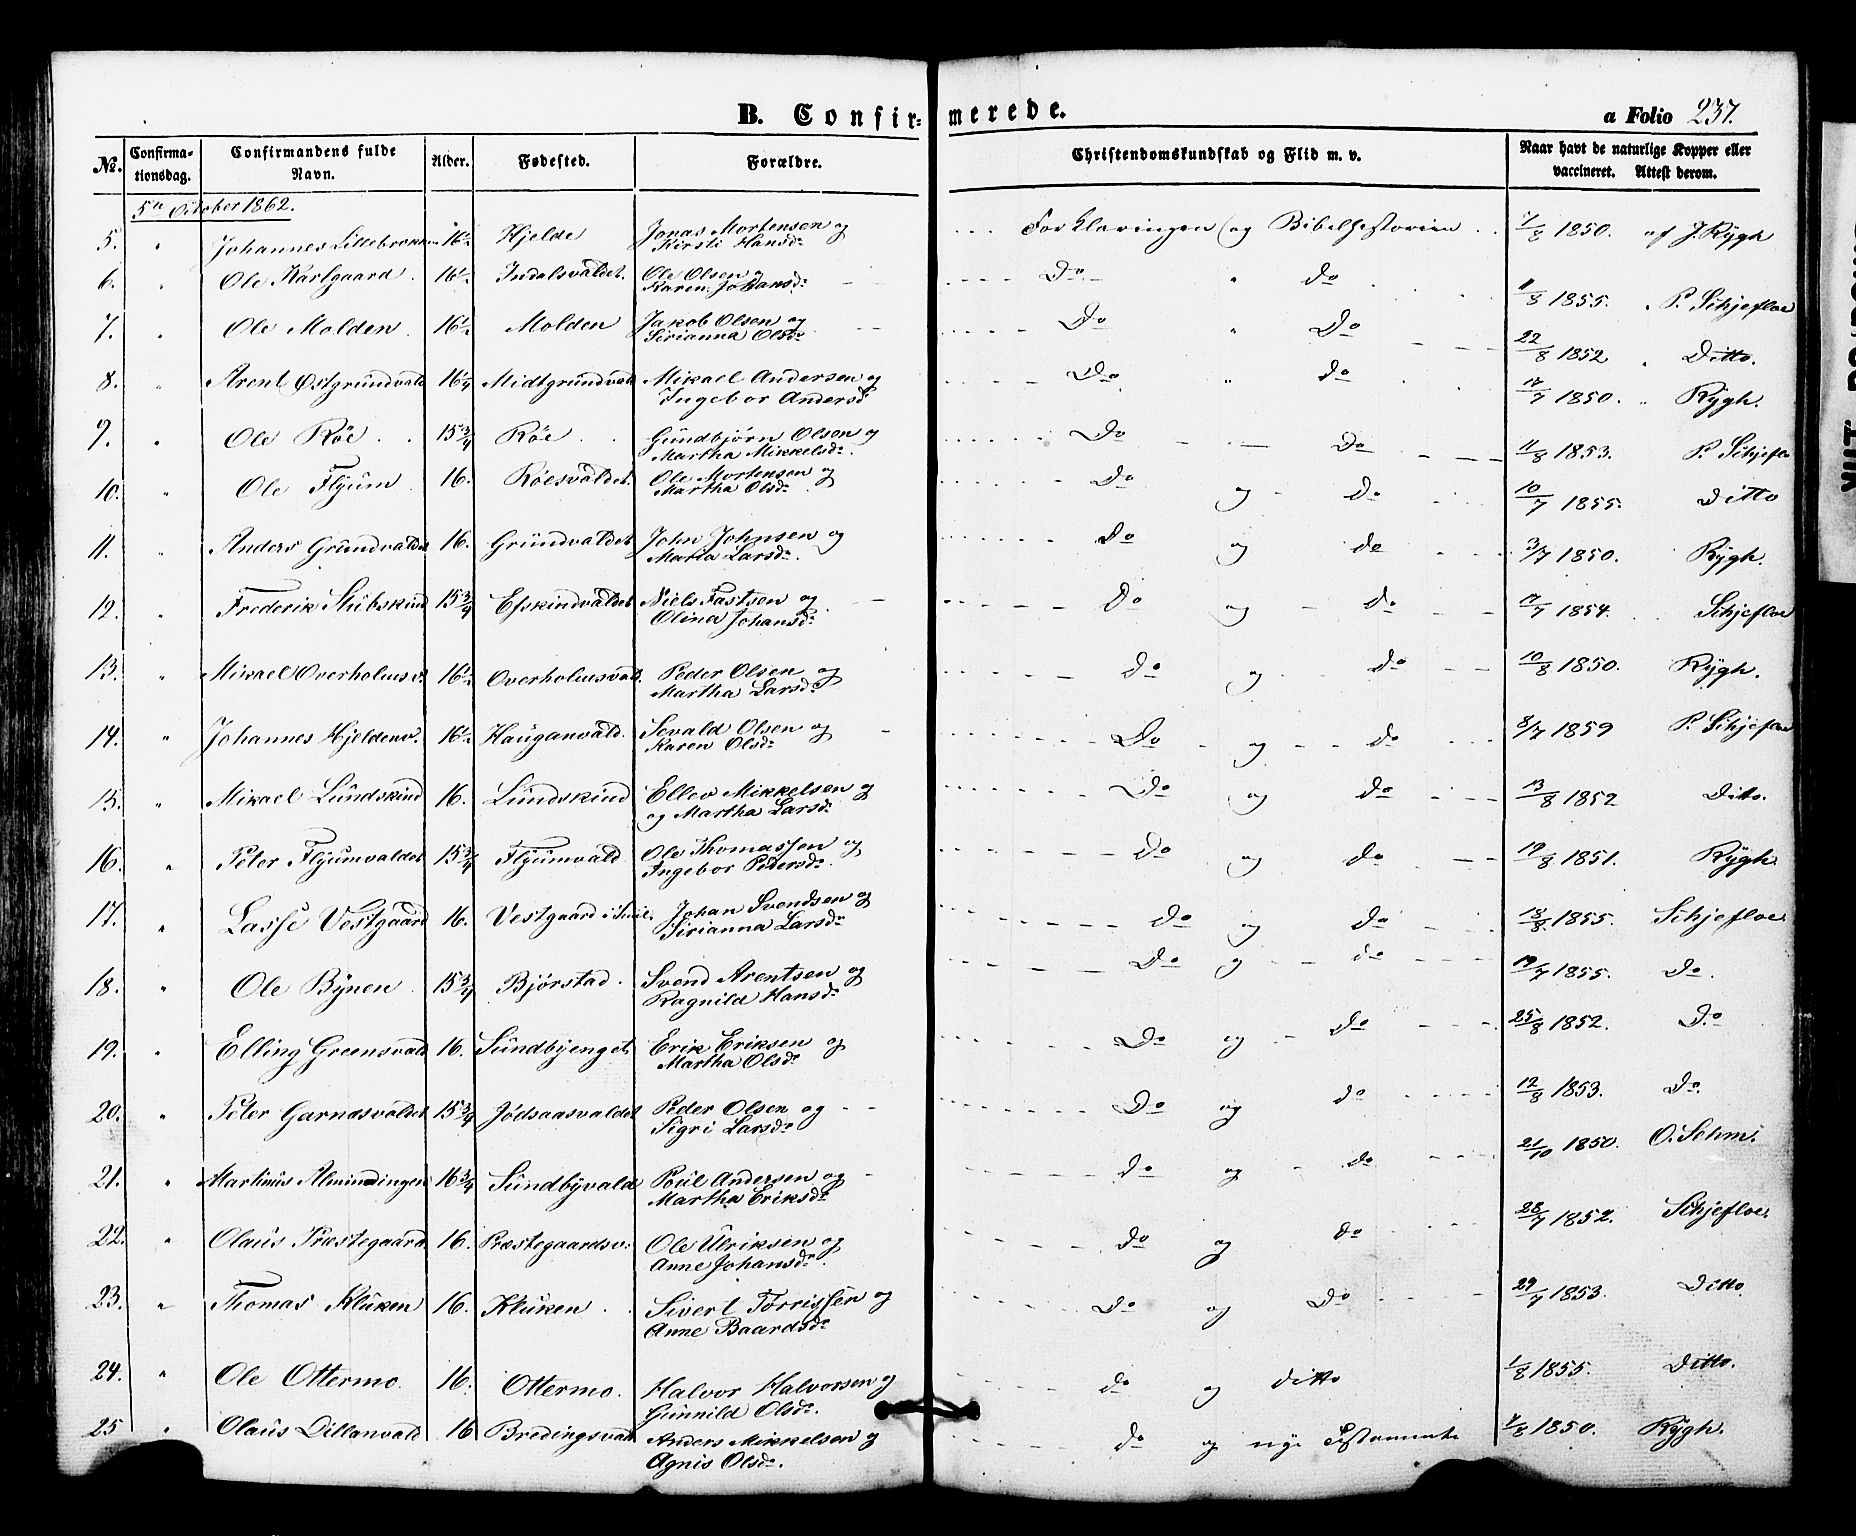 B. Confir- merede. a Folio 237.
No. Confirmationsdag. Confirmandens fulde Navn. Alder. Fødested. Forældre. Christendomskundskab og Flid m. v. Naar havt de naturlige Kopper eller vaccineret. Attest derom.
5te October 1862.
5. " Johannes Lillebrokken 16½ Hjelde Jonas Mortensen og Kirsti Hansdr Forklaringen og Bibelhistorien 7/8 1850. af J. Rygh
6. " Ole Karlgaard 16½ Indalsvaldet. Ole Olsen og Karen Johansdr Do " do 11/8 1855. " P. Schjefloe
7. " Ole Molden 16½ Molden Jakob Olsen og Sirianna Olsdr Do " Do 22/8 1852 " Ditto.
8. " Arent Østgrundvald 16¼ Midtgrundvald Mikael Andersen og Ingebor Andersd Do " do 17/7 1850. " Rygh.
9. " Ole Röe 15¾ Röe Gundbjørn Olsen og Martha Mikkelsdr Do - Do 11/8 1853. P. Schjefloe
10. " Ole Flyum 16. Röesvaldet. Ole Mortensen og Martha Olsdr Do og do 10/7 1855. Ditto
11. " Anders Grundvaldet 16. Grundvaldet John Johnsen og Marta Larsdr. Do og do 3/7 1850. Rygh.
12. " Frederik Stubskind 15¾ Eskindvaldet Niels Fastsen og Olina Johansdr Do og do 17/7 1854. Schjefloe
13. " Mikael Overholmsv. 16½ Overholmsvald. Peder Olsen og Martha Larsdr do og do 10/8 1850. Rygh.
14. " Johannes Hjeldenv. 16½ Hauganvald. Sevald Olsen og Karen Olsdr Do og do 8/7 1859 P. Schjefloe
15. " Mikael Lundskind 16. Lundskind Ellev Mikkelsen og og Martha Larsdr Do og do 13/8 1852 Ditto.
16. " Peter Flyumvaldet 15¾ Flyumvald Ole Thomassen og Ingebor Pedersdr. do og do 19/8 1851. Rygh.
17. " Lasse Vestgaard 16. Vestgaard Johan Svendsen og Sirianna Larsdr do og do 18/8 1855. Schjefloe
18. " Ole Bynen 15¾ Bjørstad. Svend Arentsen og Ragnild Hansdr Do og do 19/7 1855. Do.
19. " Elling Greensvald 16. Sundbyenget Erik Eriksen og Martha Olsdr Do og do 25/8 1852. Do
20. " Peter Garnæsvaldet 15¾ Jødsaasvaldet Peder Olsen og Sigri Larsdr Do og do 12/8 1853. Do.
21. " Martinus Almindingen 16¾ Sundbyvald Poul Andersen og Martha Eriksdr do og do 21/10 1850. O. Schm.
22. " Olaus Præstegaard 16. Præstegaardsv. Ole Ulriksen og Anne Johansdr. do og do 28/7 1852. Schjefloe.
23. " Thomas Kluken 16. Kluken Sivert Torrissen og Anne Baardsdr Do og Do 29/7 1853. Ditto
24. " Ole Ottermo 16. Ottermo. Halvor Halvorsen og Gunnild Olsdr. do og ditto 1/8 1855. Ditto.
25 " Olaus Dillanvald 16 Bredingsvald Anders Mikkelsen og Agnis Olsdr. do og nye Testamente 7/8 1850. Rygh.